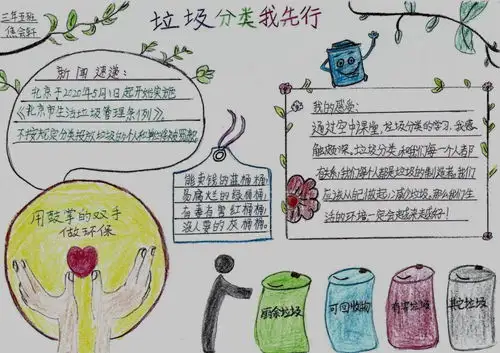 三年五班
垃圾分类我先行
新闻速递：
北京于2020年5月1日起开始实施
《北京市生活垃圾管理条例》,
不按规定分类投放垃圾的个人和单位将被罚款
能卖钱的蓝桶桶，
易腐烂的绿桶桶，
有毒有害红桶桶，
没人要的灰桶桶。
我的感想：
通过空中课堂，垃圾分类的学习，我感
触颇深。垃圾分类和我们每一个人都
有关系，我们每个人都是垃圾的制造者。我们
应该从自己做起，减少垃圾。那么我们生
活的环境一定会越来越好！
用鼓掌的双手
做环保
厨余垃圾
可回收物
有害垃圾
其它垃圾